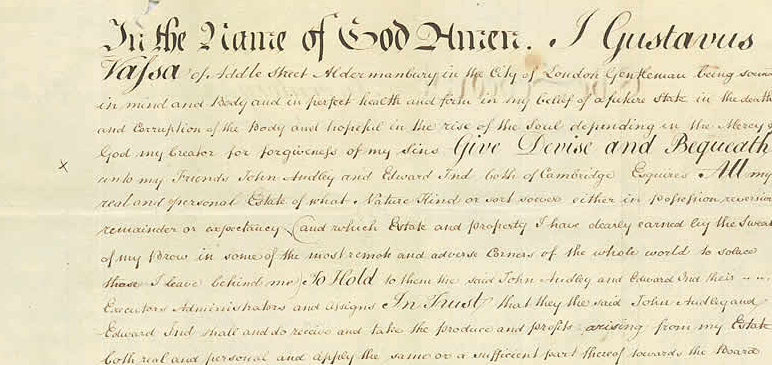 In the Name of God Amen. I Gustavus
Vassa of Addle Street Aldermanbury in the City of London Gentleman being sound
in mind and Body and in perfect health and firm in my belief of a future state in the death
and Corruption of the Body and hopeful in the rise of the Soul depending in the Mercy of
God my Creator for forgiveness of my Sins Give Devise and Bequeath
unto my Friends John Audley and Edward Ind both of Cambridge Esquires All my
real and personal Estate of what Nature Kind or sort soever either in possession reversion
remainder or expectancy (and which Estate and property I have dearly earned by the Sweat
of my Brow in some of the most remote and adverse Corners of the whole world to solace
those I leave behind me) To Hold to them the said John Audley and Edward Ind their
Executors Administrators and assigns In Trust that they the said John Audley and
Edward Ind shall and do receive and take the produce and profits arising from my Estate
both real and personal and apply the same or a sufficient part thereof towards the Board